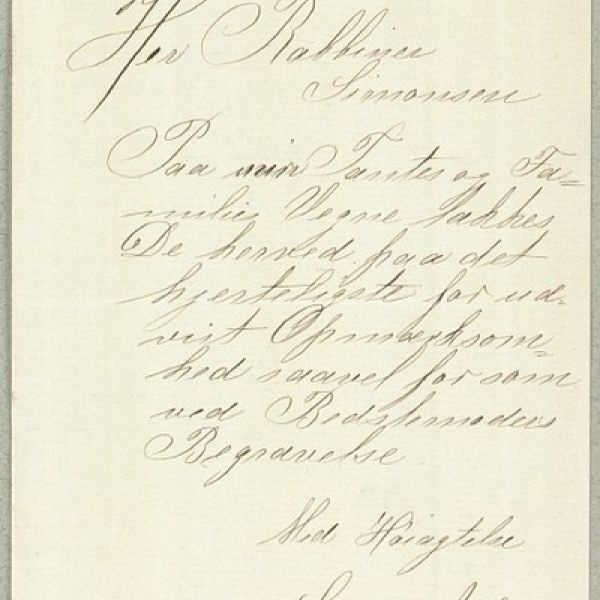 Her Rabbiner
Simonsen
Paa min Tantes og Fa=
milies Vegne takkes
De herved paa det
hjerteligste for ud-
vist Opmærksom=
hed saavel for som
ved Bedstemoders
Begravelse
Med Høiagtelse